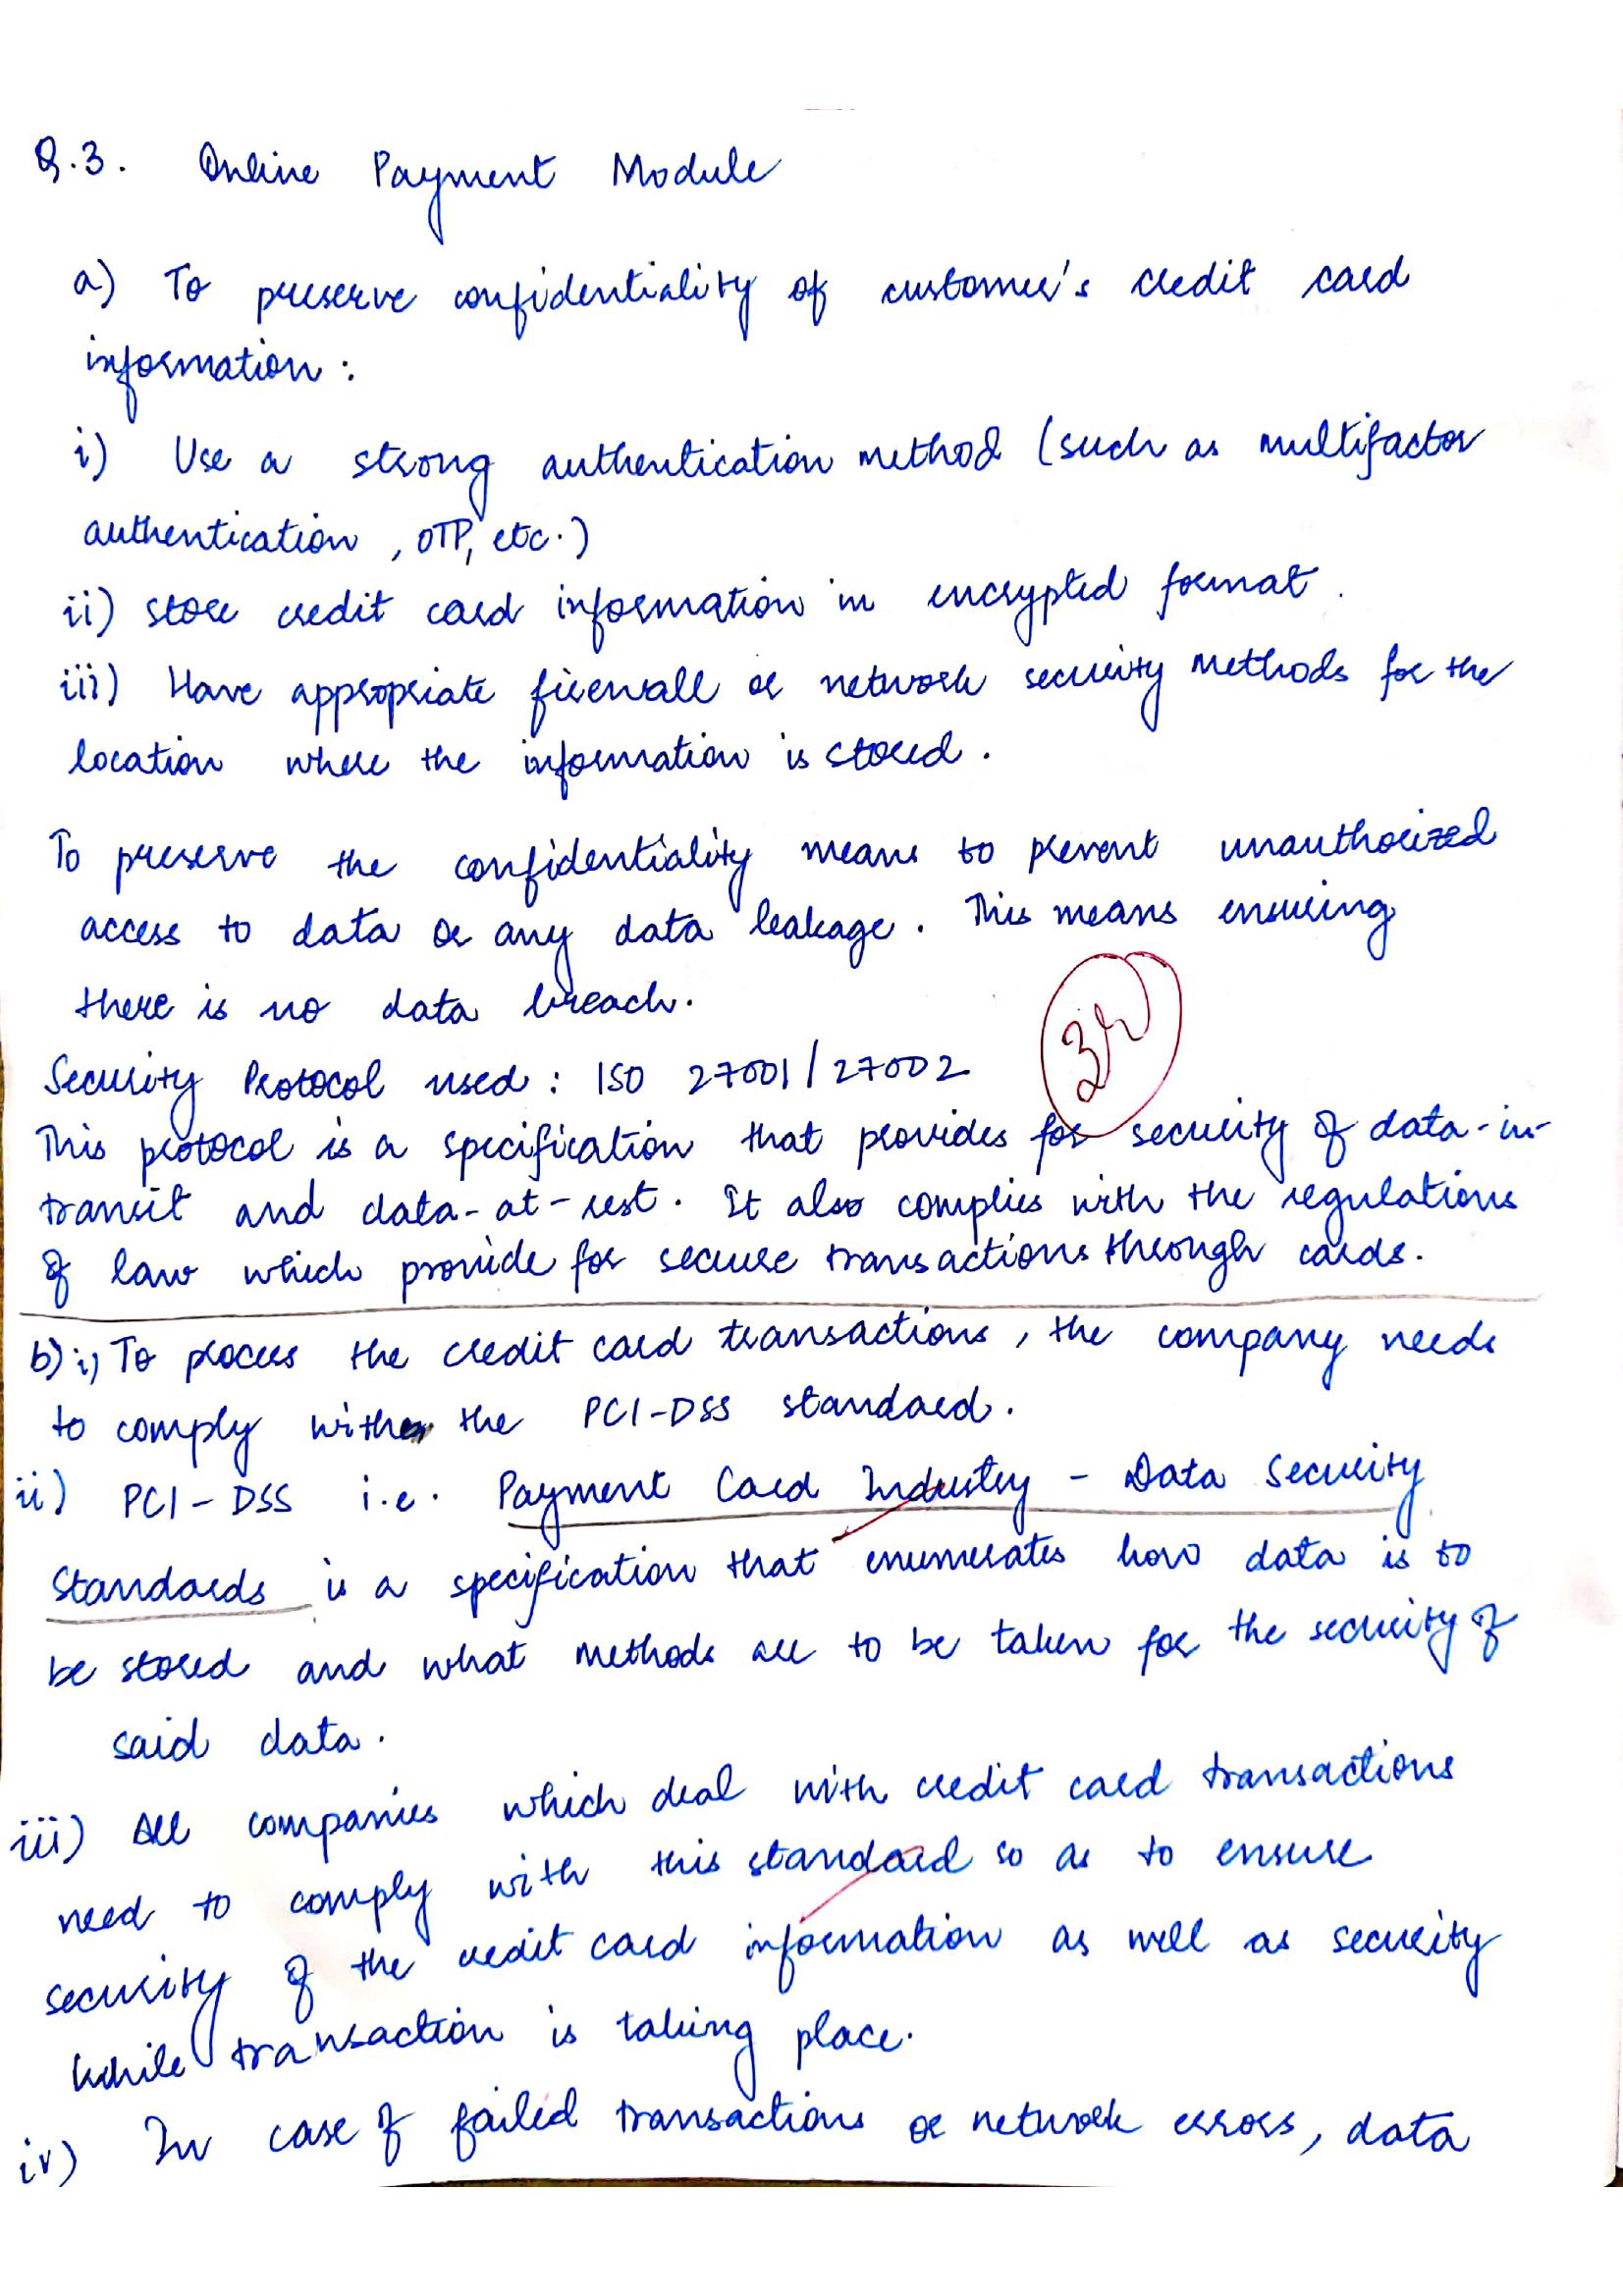 Q.3. Online Payment Module
a) To preserve confidentiality of customer's credit card
information :
i) Use a strong authentication method (such as multifactor
authentication, OTP, etc.)
ii) store credit card information in encrypted format.
iii) Have appropriate firewall or network security methods for the
location where the information is stored.
To preserve the confidentiality means to prevent unauthorized
access to data or any data leakage. This means ensuring
there is no data breach.
Security Protocol used : ISO 27001/27002
This protocol is a specification that provides for security of data-in-
transit and data-at-rest. It also complies with the regulations
of law which provide for secure transactions through cards.
b) i) To process the credit card transactions, the company needs
to comply with the PCI-DSS standard.
ii) PCI-DSS i.e. Payment Card Industry - Data Security
Standards is a specification that enumerates how data is to
be stored and what methods are to be taken for the security of
said data.
iii) All companies which deal with credit card transactions
need to comply with this standard so as to ensure
security of the credit card information as well as security
while transaction is taking place.
iv) In case of failed transactions or network errors, data